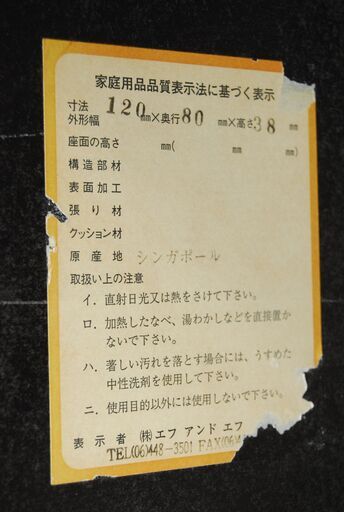 家庭用品品質表示法に基づく表示
寸法
外形幅 120 mm×奥行 80 mm×高さ 38 mm
座面の高さ mm( mm mm
構造部材
表面加工
張り材
クッション材
原産地 シンガポール
取扱い上の注意
イ．直射日光又は熱をさけて下さい。
ロ．加熱したなべ、湯わかしなどを直接置か
ないで下さい。
ハ．著しい汚れを落とす場合には、うすめた
中性洗剤を使用して下さい。
ニ．使用目的以外には使用しないで下さい。
表示者 ㈱エフ アンド エフ
TEL(06)448-3501 FAX(06)4